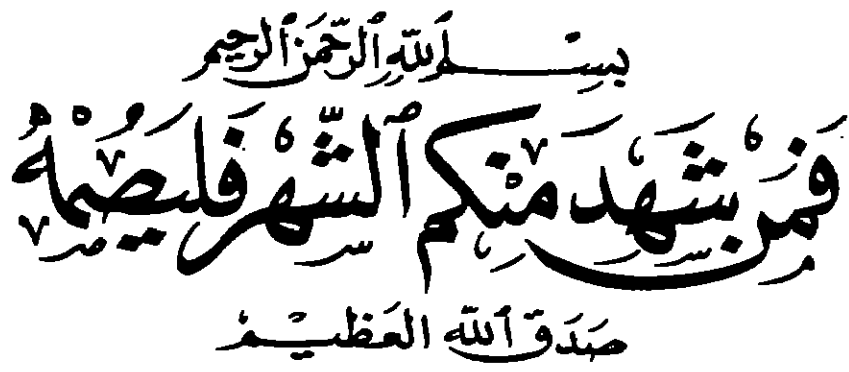 بِسْمِ ٱللَّهِ ٱلرَّحْمَنِ ٱلرَّحِيمِ
فَمَن شَهِدَ مِنكُمُ ٱلشَّهْرَ فَلْيَصُمْهُ
صَدَقَ ٱللَّه العَظِيْم